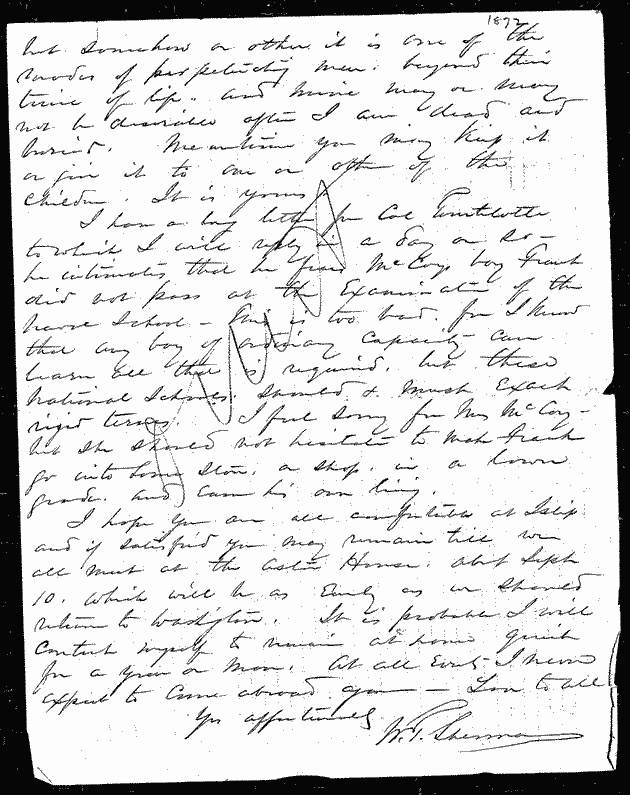 1872
but somehow or other it is one of the
modes of perpetuating men. beyond their
time of life. and mine may or may
not be desirable after I am dead and
buried. Meantime you may keep it
or give it to one or other of the
children. It is yours
I have a long letter from Col
to which I will reply in a day or so—
he intimates that he fears McCoys boy Frank
did not pass at the Examination of the
School — this is too bad, for I know
that any boy of ordinary capacity can
learn all that is required, but these
National Schools. should & must exact
rigid terms. I feel sorry for Mrs McCoy—
but she should not hesitate to make Frank
go into some store, or shop. in a lower
grade. and earn his own living.
I hope you are all comfortable at Islip
and if satisfied you may remain till we
all meet at the Astor House. abt Sept
10. which will be as early as we should
return to Washington. It is probable I will
content myself to remain at home quiet
for a year or more. At all events I never
expect to come abroad again — Love to all
Yrs affectionately
W. T. Sherman